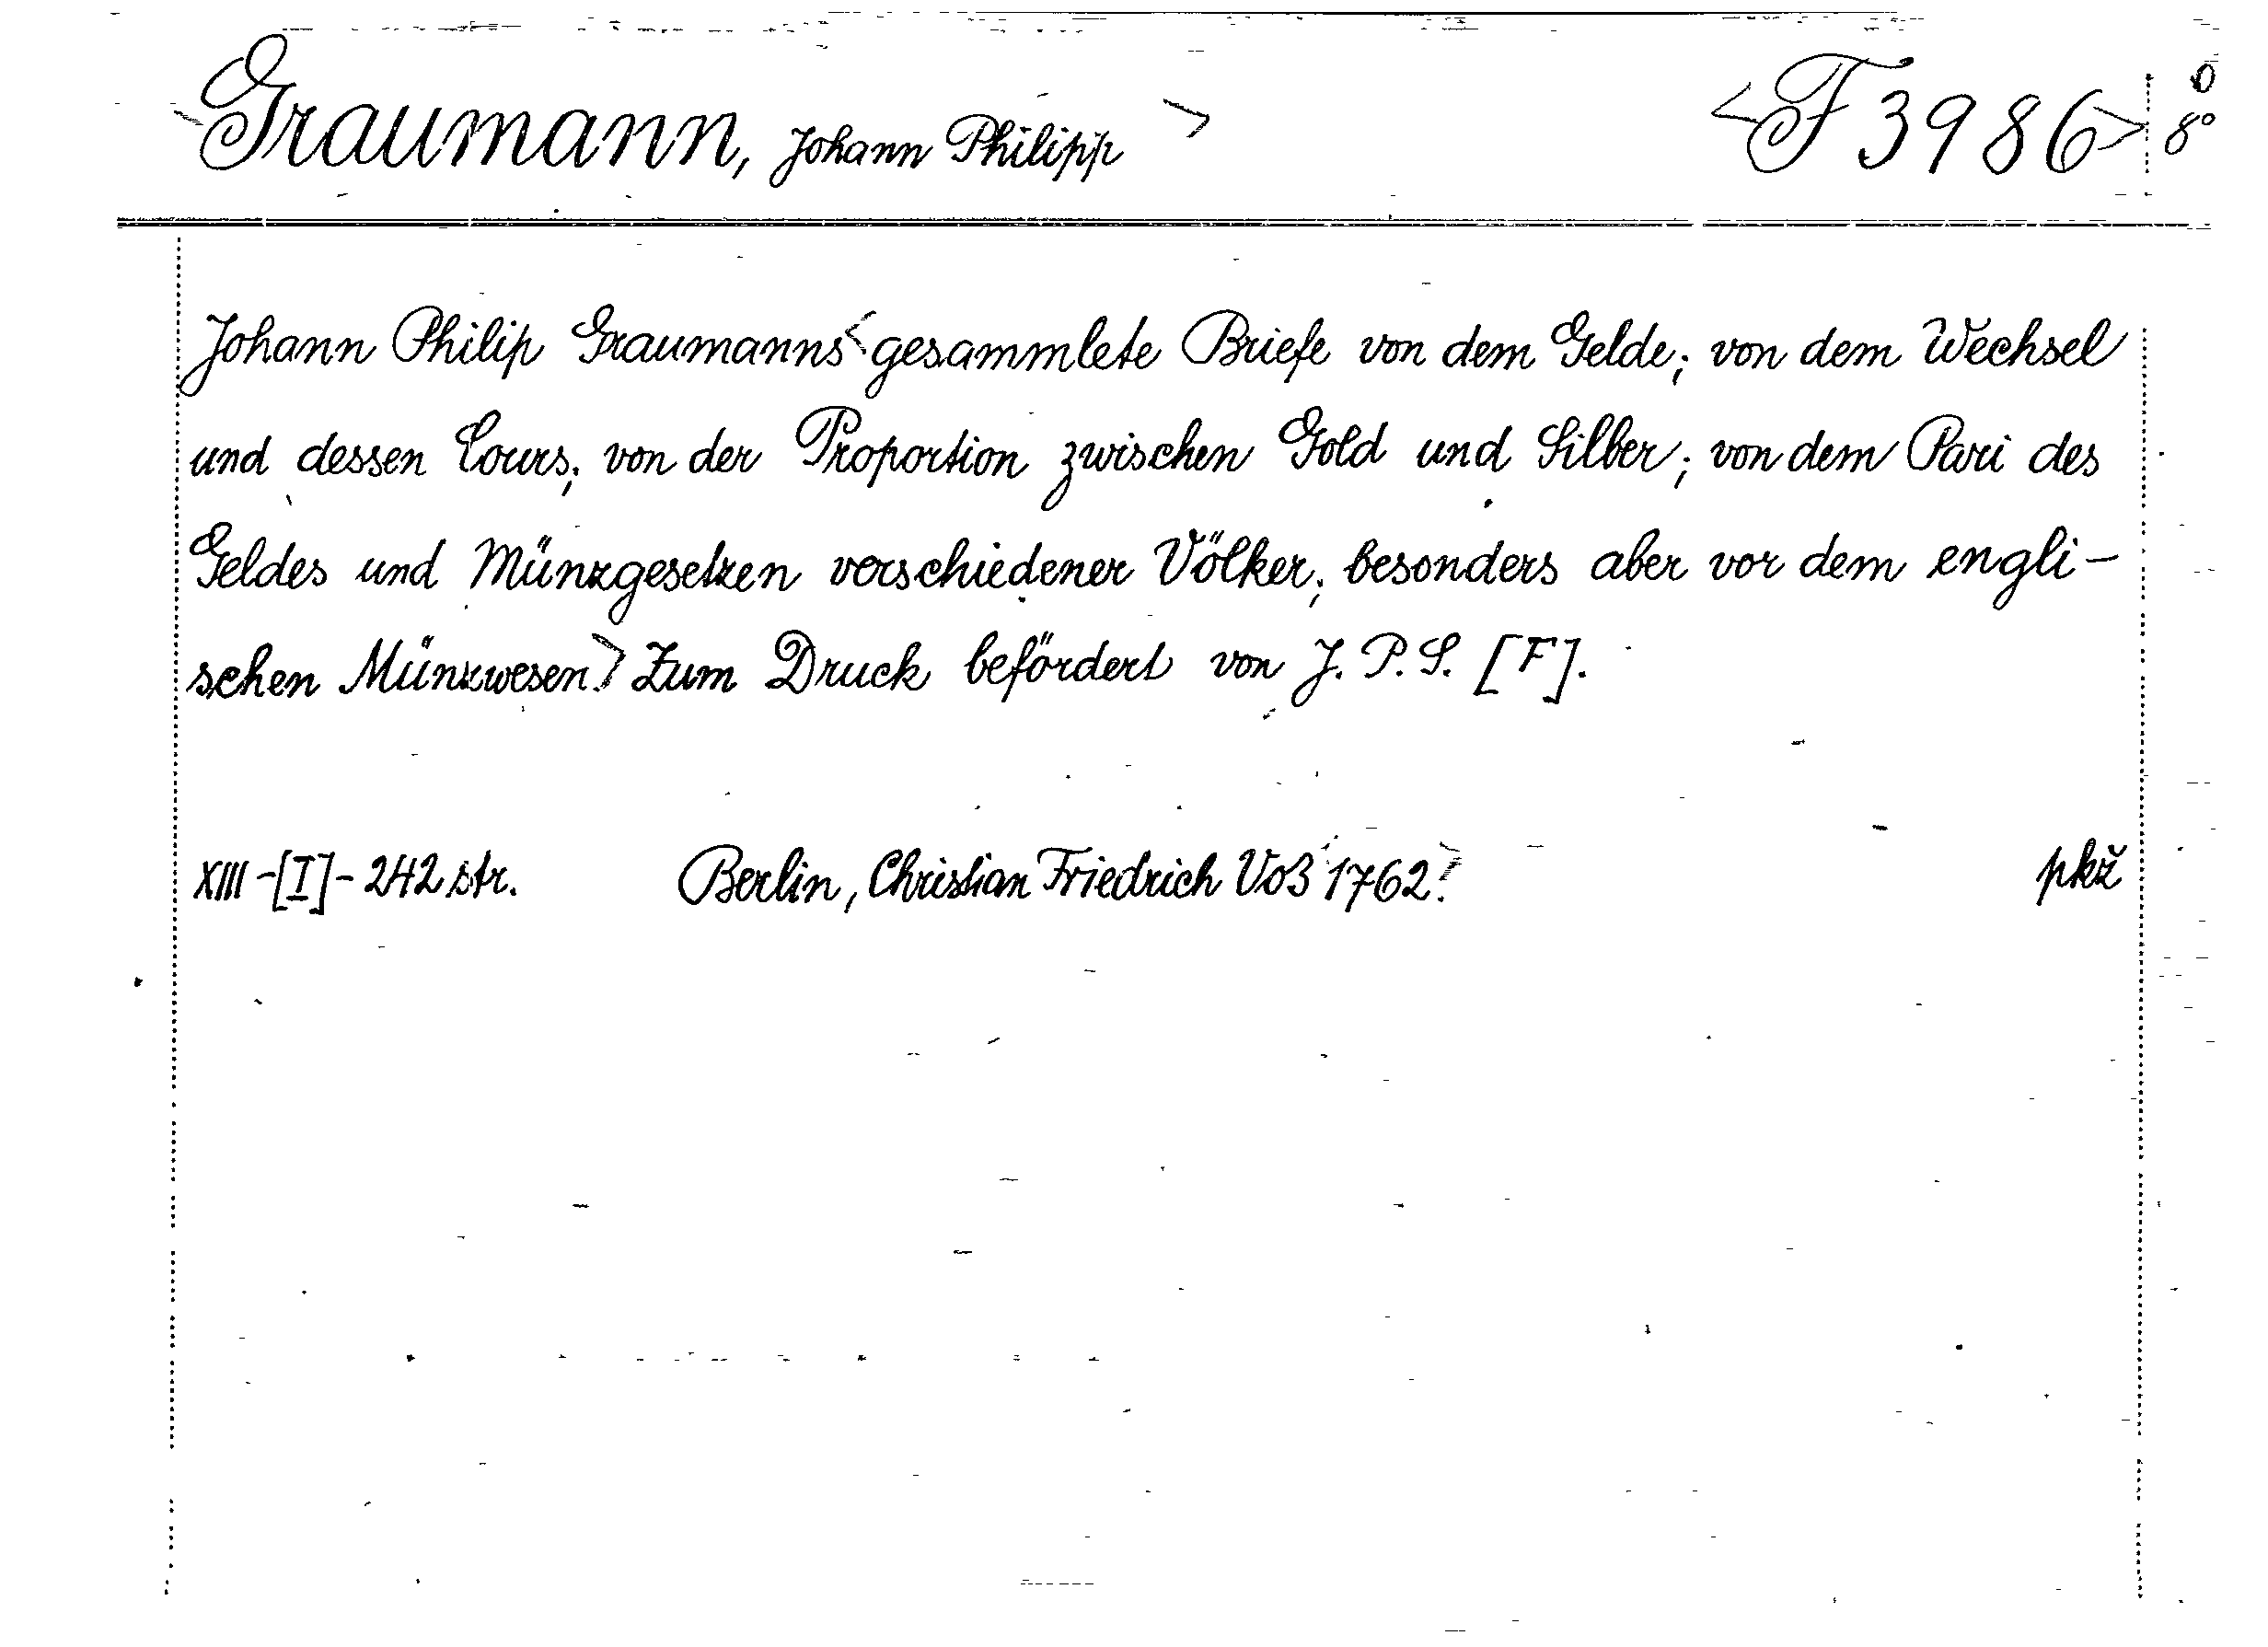 <Graumann, Johann Philipp> <F 3986> 8°
Johann Philip Graumanns <gesammlete Briefe von dem Gelde; von dem Wechsel
und dessen Cours; von der Proportion zwischen Gold und Silber; von dem Pari des
Geldes und Münzgesetzen verschiedener Völker; besonders aber vor dem engli-
schen Münzwesen.> Zum Druck befördert von J. P. S. [F].
XIII-[I]-242 str. Berlin, Christian Friedrich Voß 1762. pkž